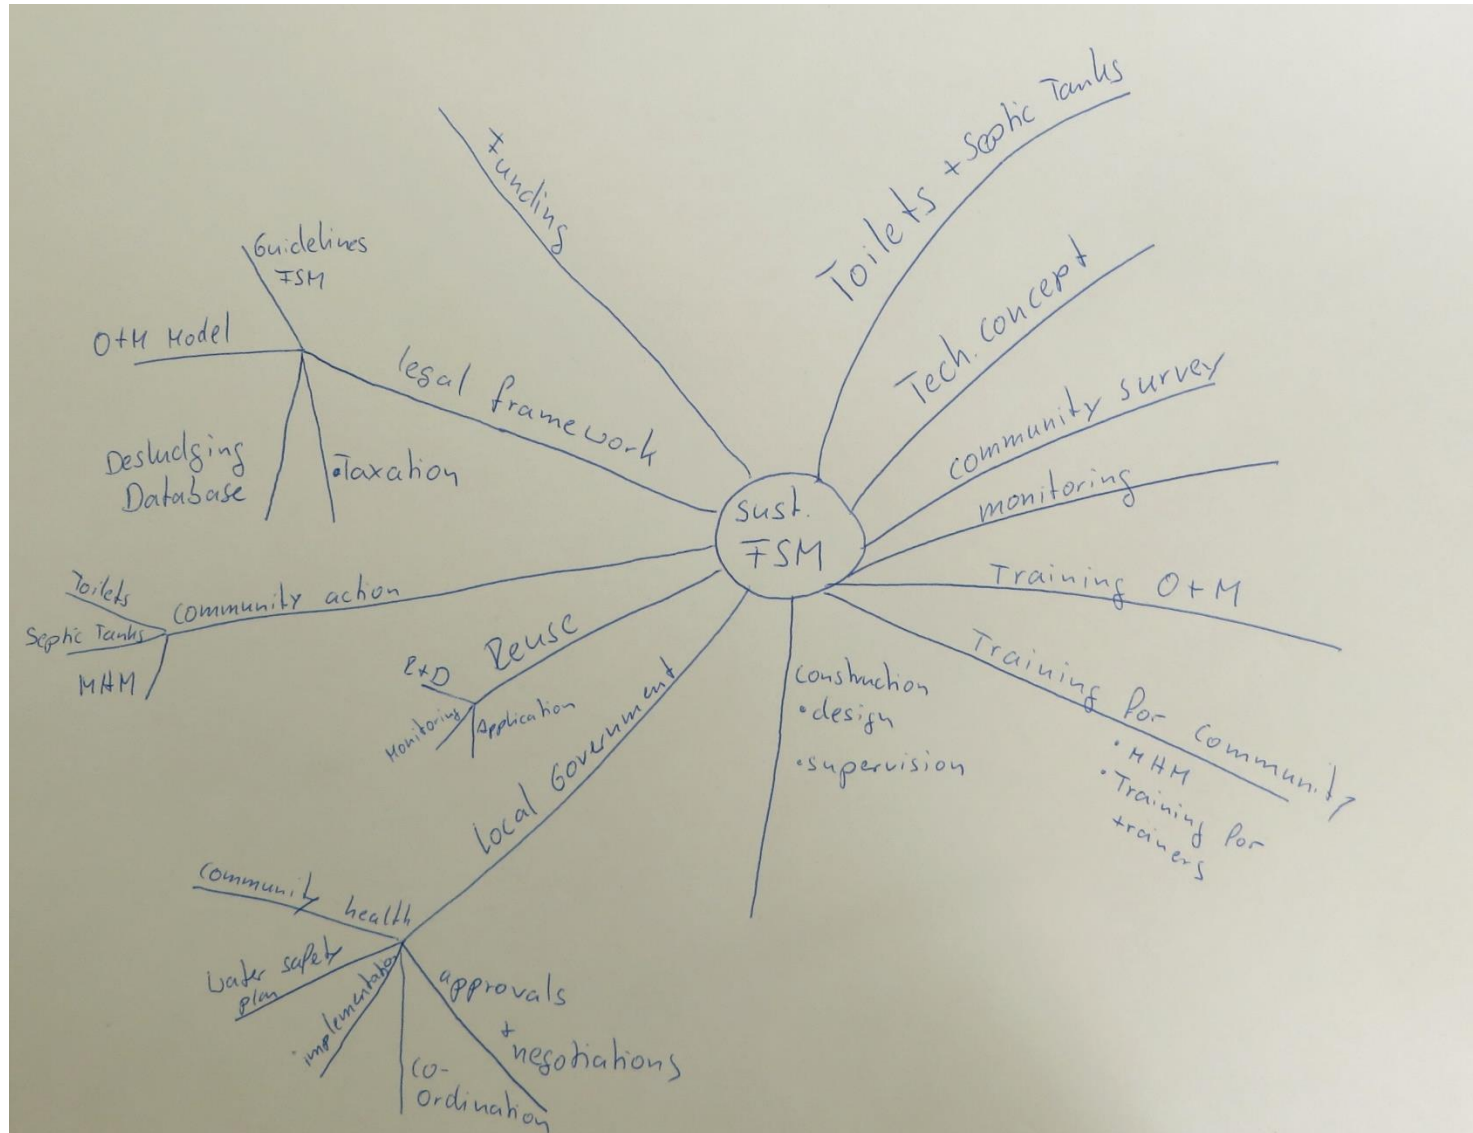 sust.
FSM
Toilets + Septic Tanks
Tech. concept
community survey
monitoring
Training O+M
Training for community
• MHM
• Training for
trainers
construction
• design
• supervision
Local Government
approvals
+
negotiations
co-
ordination
implementation
water safety
plan
community health
Reuse
R+D
Monitoring
Application
community action
Toilets
Septic Tanks
MHM
legal framework
Guidelines
FSM
O+M Model
Desludging
Database
• Taxation
Funding